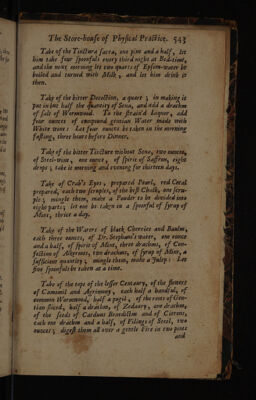 The Store-house of Physical Practice. 543
Take of the Tinctura sacra, one pint and a half, let
him take four spoonfuls every third night at Bed-time,
and the next morning let two quarts of Epsom-water be
boiled and turned with Milk, and let him drink it
then.
Take of the bitter Decoction, a quart; in making it
put in but half the quantity of Sena, and add a drachm
of salt of Wormwood. To the strain'd liquor, add
four ounces of compound gentian Water made with
White wine: Let four ounces be taken in the morning
fasting, three hours before Dinner.
Take of the bitter Tincture without Sena, two ounces,
of Steel-wine, one ounce, of spirit of Saffron, eight
drops; take it morning and evening for thirteen days.
Take of Crab's Eyes, prepared Pearl, red Coral
prepared, each two scruples, of the best Chalk, one scru-
ple; mingle them, make a Powder to be divided into
eight parts; let one be taken in a spoonful of syrup of
Mint, thrice a day.
Take of the Waters of black Cherries and Baulm,
each three ounces, of Dr. Stephans's water, one ounce
and a half, of spirit of Mint, three drachms, of Con-
fection of Alkermes, two drachms, of syrup of Mint, a
sufficient quantity; mingle them, make a Julep: Let
five spoonfuls be taken at a time.
Take of the tops of the lesser Centaury, of the flowers
of Camomil and Agrimony, each half a handful, of
common Wormwood, half a pugil, of the roots of Gen-
tian sliced, half a drachm, of Zedoary, one drachm,
of the seeds of Carduus Benedictus and of Citrons,
each one drachm and a half, of Filings of Steel, two
ounces; digest them all over a gentle Fire in two pints
and